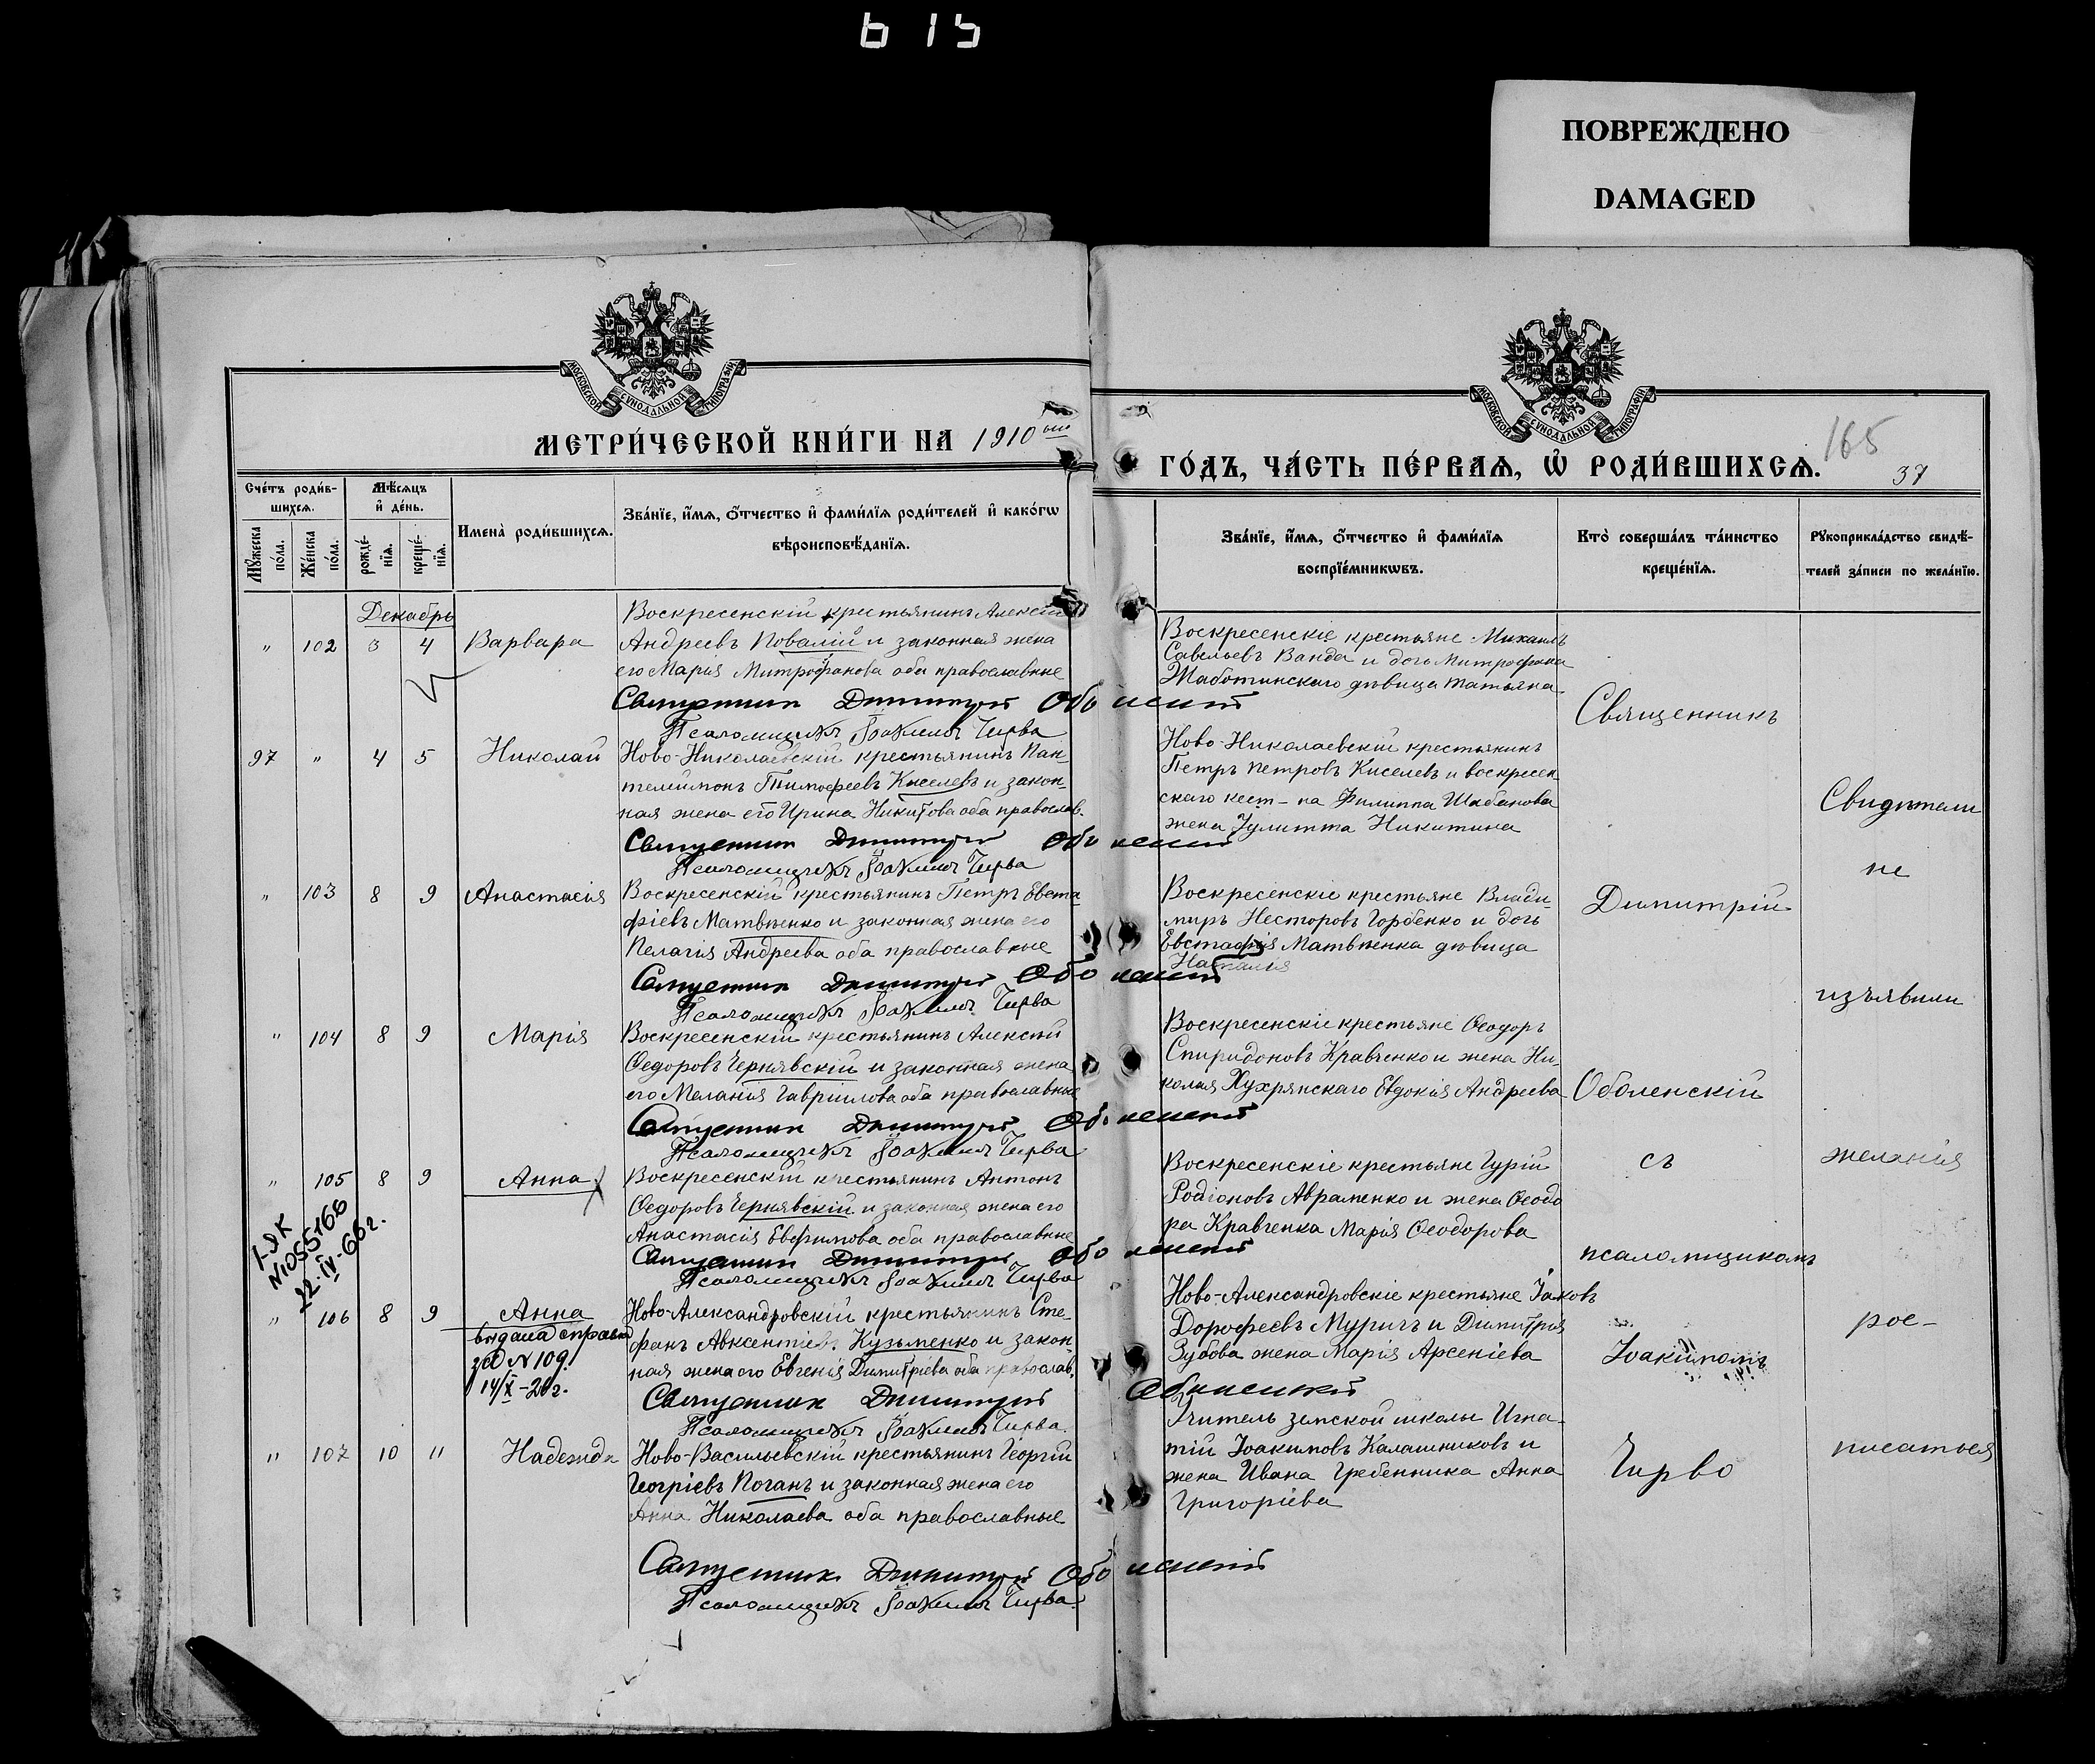 615
ПОВРЕЖДЕНО
DAMAGED
МОСКОВСКОЙ СУНОДАЛЬНОЙ ТИПОГРАФІИ
МОСКОВСКОЙ СУНОДАЛЬНОЙ ТИПОГРАФІИ
МЕТРИ́ЧЕСКОЙ КНИ́ГИ НА 1910 ый
ГО́ДЪ, ЧА́СТЬ ПЕ́РВАѦ, Ѡ҆ РОДИ́ВШИХСѦ.
165
37
Сче́тъ роди́в-
шихсѧ.
Мѣ́сѧцъ
и҆ де́нь.
Имена̀ роди́вшихсѧ.
Зва́нїе, и҆́мѧ, ѻ҆́тчество и҆ фами́лїѧ роди́телей и҆ како́гѡ
вѣроисповѣ́данїѧ.
Мꙋ́жеска
по́ла.
Же́нска
по́ла.
рожде́-
нїѧ.
креще́-
нїѧ.
Зва́нїе, и҆́мѧ, ѻ҆́тчество и҆ фами́лїѧ
воспрїе́мникѡвъ.
Кто̀ соверша́лъ та́инство
креще́нїѧ.
Рꙋкоприкла́дство свидѣ́-
телей за́писи по жела́нїю.
Декабрь
" 102 3 4 Варвара
Воскресенскій крестьянинъ Алексій
Андреевъ Повалій и законная жена
его Марія Митрофанова оба православные
Священникъ Димитрій Оболенскій
Псаломщикъ Іоакимъ Чирва
Воскресенскіе крестьяне Михаилъ
Савельевъ Ванда и дочь Митрофана
Жаботинскаго дѣвица Татьяна
97 " 4 5 Николай
Ново-Николаевскій крестьянинъ Пан-
телеимонъ Тимофеевъ Киселевъ и закон-
ная жена его Ирина Никитова оба православ.
Священникъ Димитрій Оболенскій
Псаломщикъ Іоакимъ Чирва
Ново-Николаевскій крестьянинъ
Петръ Петровъ Киселевъ и воскресен
скаго кест-на Филиппа Шабанова
жена Іулитта Никитина
" 103 8 9 Анастасія
Воскресенскій крестьянинъ Петръ Евста
фіевъ Матвѣенко и законная жена его
Пелагія Андреева оба православные
Священникъ Димитрій Оболенскій
Псаломщикъ Іоакимъ Чирва
Воскресенскіе крестьяне Влади
миръ Несторовъ Горбенко и дочь
Евстафія Матвѣенка дѣвица
Наталія
" 104 8 9 Марія
Воскресенскій крестьянинъ Алексѣй
Ѳедоровъ Чернявскій и законная жена
его Меланія Гавріилова оба православные
Священникъ Димитрій Оболенскій
Псаломщикъ Іоакимъ Чирва
Воскресенскіе крестьяне Ѳеодоръ
Спиридоновъ Кравченко и жена Ни-
колая Хухрянскаго Евдокія Андреева
" 105 8 9 Анна
Воскресенскій крестьянинъ Антонъ
Ѳедоровъ Чернявскій и законная жена его
Анастасія Евфимова оба православные
Священникъ Димитрій Оболенскій
Псаломщикъ Іоакимъ Чирва
Воскресенскіе крестьяне Гурій
Родіоновъ Авраменко и жена Ѳеодо
ра Кравченка Марія Ѳеодорова
1-ЯК
N1055166
22·IV·66г.
" 106 8 9 Анна
выдана справка
за N 109
14/X-20г.
Ново-Александровскій крестьянинъ Сте-
фанъ Авксентіевъ Кузьменко и закон-
ная жена его Евгенія Димитріева оба православ.
Священникъ Димитрій Оболенскій
Псаломщикъ Іоакимъ Чирва.
Ново-Александровскіе крестьяне Іаковъ
Дорофеевъ Муричъ и Димитрія
Зубова жена Марія Арсеніева
" 107 10 11 Надежда
Ново-Васильевскій крестьянинъ Георгій
Георгіевъ Поганъ и законная жена его
Анна Николаева оба православные
Священникъ Димитрій Оболенскій
Псаломщикъ Іоакимъ Чирва.
Учитель земской школы Игна-
тій Іоакимовъ Калашниковъ и
жена Ивана Гребенника Анна
Григоріева
Священникъ
Димитрій
Оболенскій
съ
псаломщикомъ
Іоакимомъ
Чирво
Свидѣтели
не
изъявили
желанія
рос-
писаться